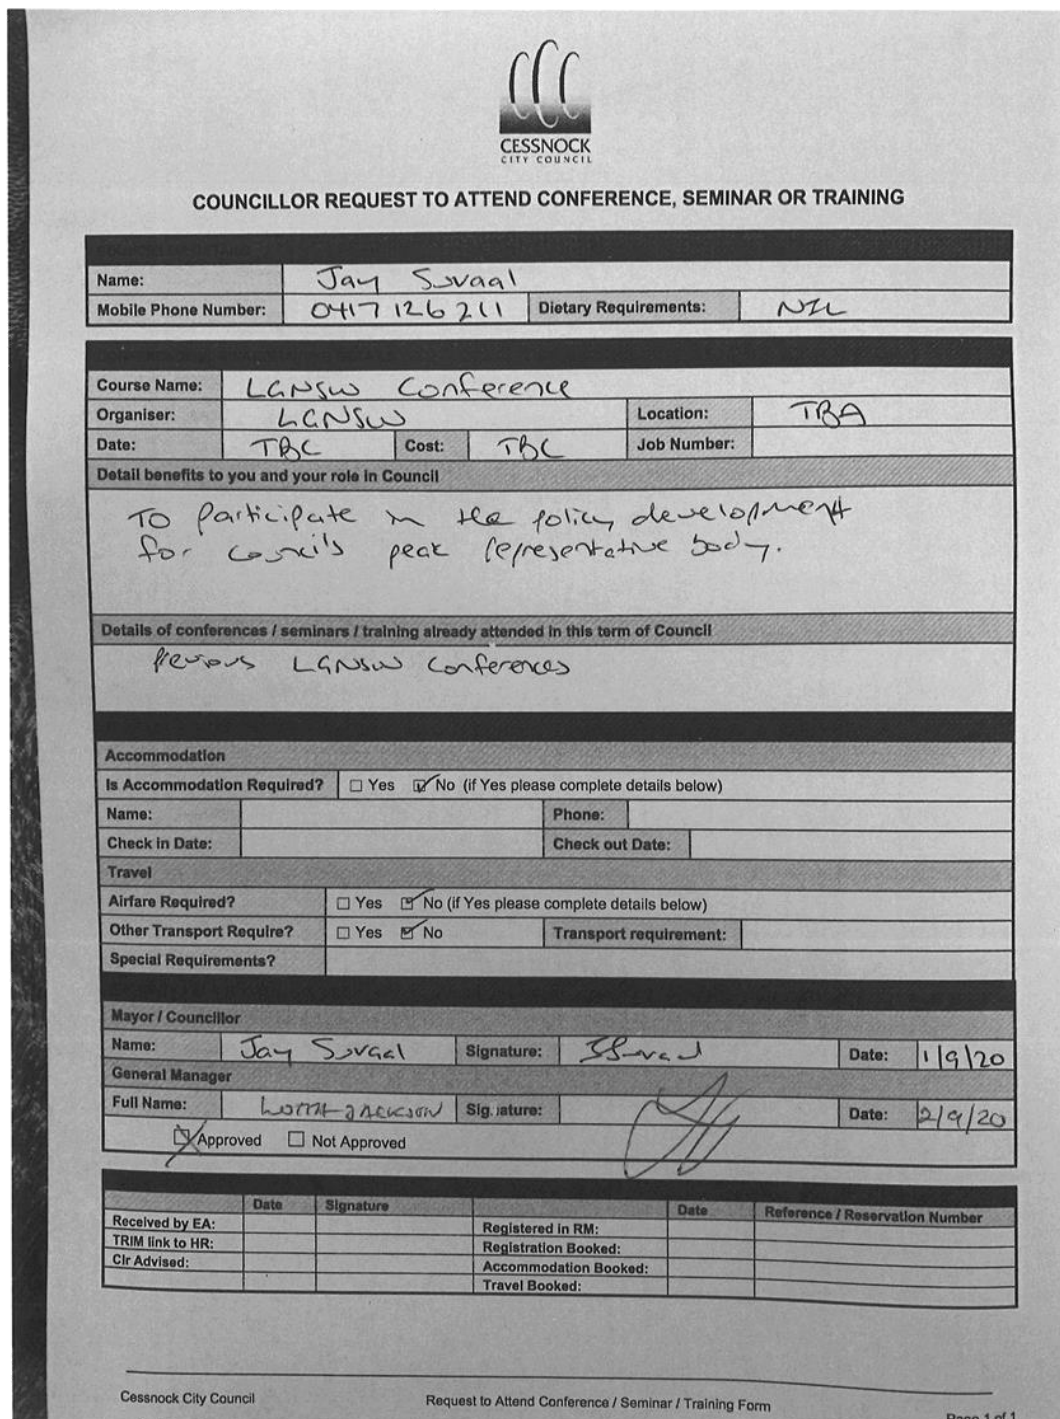 CESSNOCK
CITY COUNCIL
COUNCILLOR REQUEST TO ATTEND CONFERENCE, SEMINAR OR TRAINING
Name: Jay Suvaal
Mobile Phone Number: 0417 126 211 Dietary Requirements: NIL
Course Name: LGNSW Conference
Organiser: LGNSW Location: TBA
Date: TBC Cost: TBC Job Number:
Detail benefits to you and your role in Council
To participate in the policy development
for council's peak representative body.
Details of conferences / seminars / training already attended in this term of Council
Previous LGNSW Conferences
Accommodation
Is Accommodation Required? Yes No (if Yes please complete details below)
Name: Phone:
Check in Date: Check out Date:
Travel
Airfare Required? Yes No (if Yes please complete details below)
Other Transport Require? Yes No Transport requirement:
Special Requirements?
Mayor / Councillor
Name: Jay Suvaal Signature: JSuvaal Date: 1/9/20
General Manager
Full Name: JACKSON Signature: Date: 2/9/20
Approved Not Approved
Date Signature Date Reference / Reservation Number
Received by EA: Registered in RM:
TRIM link to HR: Registration Booked:
Clr Advised: Accommodation Booked:
Travel Booked:
Cessnock City Council Request to Attend Conference / Seminar / Training Form Page 1 of 1